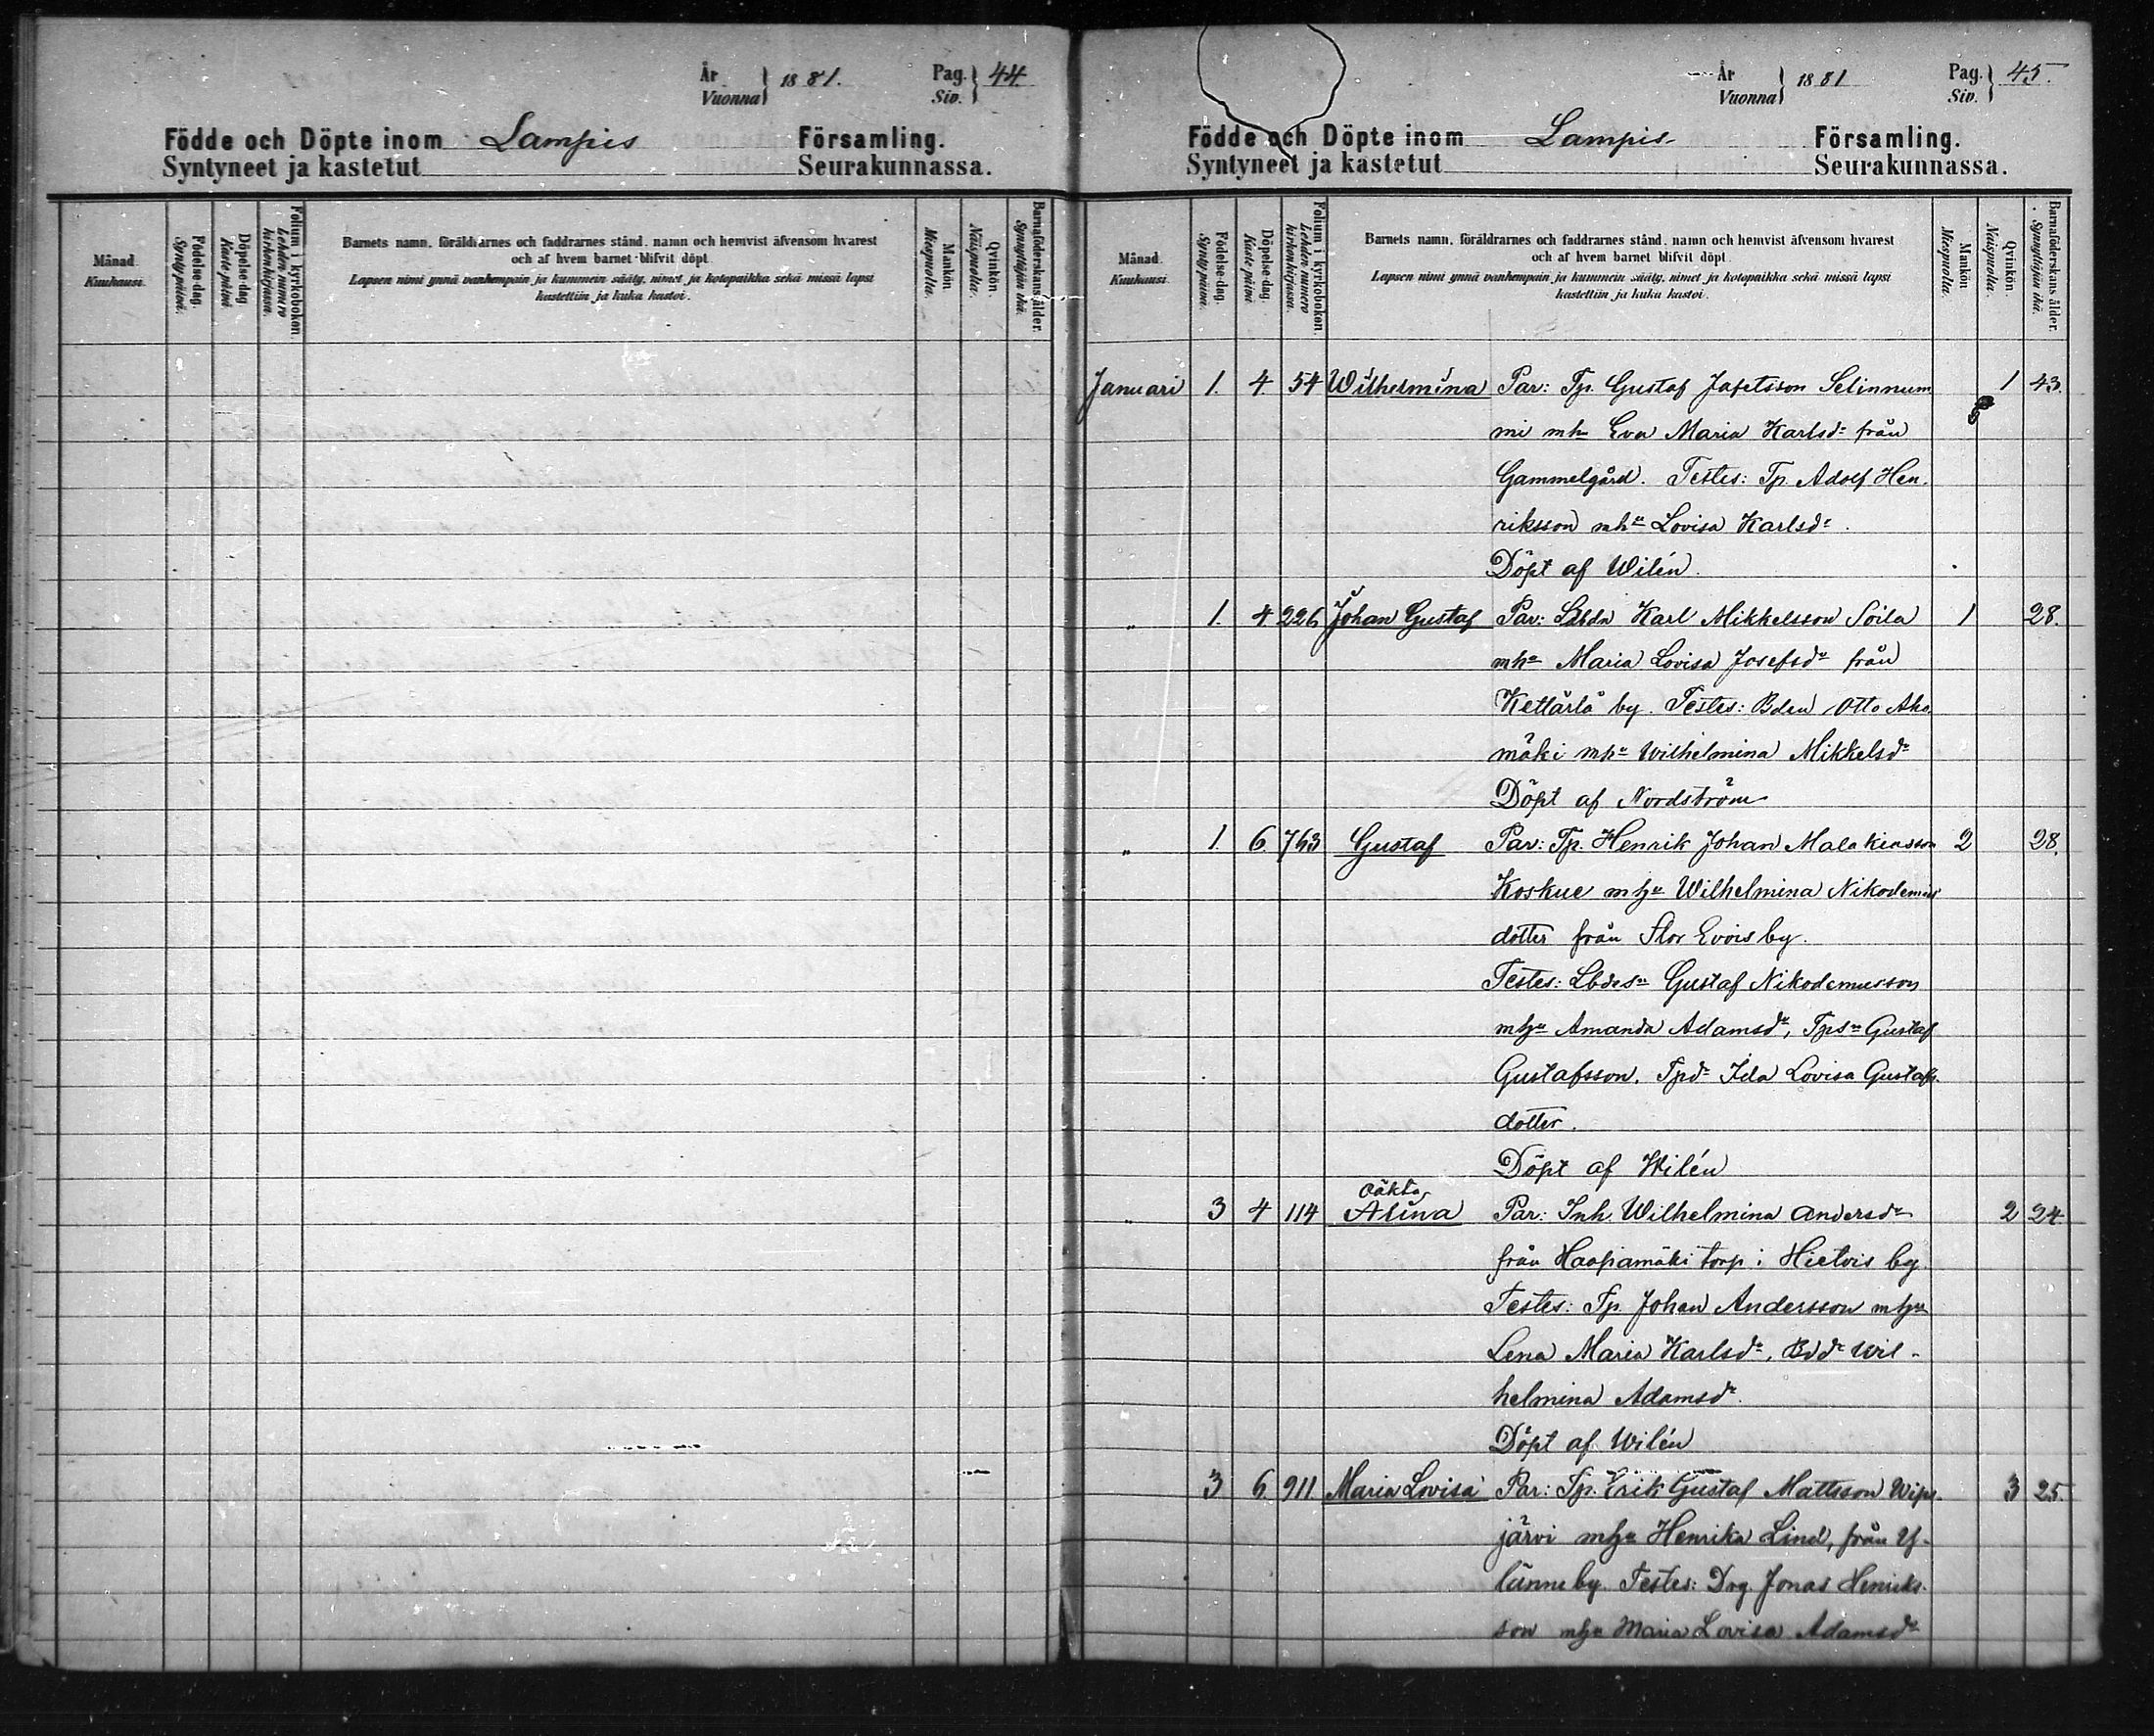 År
Vuonna } 1881. Pag.
Siv. } 44.
Födde och Döpte inom Lampis Församling.
Syntyneet ja kastetut Seurakunnassa.
Månad.
Kuukausi.
Födelse-dag.
Syntypäivä.
Döpelse-dag
Kaste päivä.
Folium i kyrkoboken.
Lehden numero
kirkonkirjassa.
Barnets namn, föräldrarnes och faddrarnes stånd, namn och hemvist äfvensom hvarest
och af hvem barnet blifvit döpt.
Lapsen nimi ynnä vanhempain ja kummein sääty, nimet ja kotopaikka sekä missä lapsi
kastettiin ja kuka kastoi.
Mankön
Miespuolia.
Qvinkön.
Naispuolia.
Barnaföderskans ålder.
Synnyttäjän ikä.
År
Vuonna } 1881 Pag.
Siv. } 45.
Födde och Döpte inom Lampis Församling.
Syntyneet ja kastetut Seurakunnassa.
Månad.
Kuukausi.
Födelse-dag.
Syntypäivä.
Döpelse-dag.
Kaste päivä.
Folium i kyrkoboken.
Lehden numero
kirkonkirjassa.
Barnets namn, föräldrarnes och faddrarnes stånd, namn och hemvist äfvensom hvarest
och af hvem barnet blifvit döpt.
Lapsen nimi ynnä vanhempain ja kummein sääty, nimet ja kotopaikka sekä missä lapsi
kastettiin ja kuka kastoi.
Mankön
Miespuolia.
Qvinkön.
Naispuolia.
Barnaföderskans ålder.
Synnyttäjän ikä.
Januari 1. 4. 54 Wilhelmina Par: Tp. Gustaf Jafetsson Selinnum 1 43.
mi mh Eva Maria Karlsd:r från
Gammelgård. Testes: Tp. Adolf Hen.
riksson mh:u Lovisa Karlsd:r.
Döpt af Wilén.
" 1. 4. 226 Johan Gustaf Par: Karl Mikkelsson Soila 1 28.
mh:u Maria Lovisa Josefsd:r från
Kettärlä by. Testes: Bden Otto Aho.
mäki mh:u Wilhelmina Mikkelsd:r
Döpt af Nordström
" 1. 6. 763 Gustaf Par: Tp. Henrik Johan Malakiasson 2 28.
Koskue mh:u Wilhelmina Nikodemus
dotter från Stor Evois by.
Testes: Lbdes:n Gustaf Nikodemusson
mh:u Amanda Adamsd:r, Tps:n Gustaf
Gustafsson, Tpd:r Ida Lovisa Gustafs.
dotter.
Döpt af Wilén
oäkta
" 3 4 114 Alina Par: Inh. Wilhelmina Andersd:r 2 24
från Haapamäki torp i Hietois by
Testes: Tp. Johan Andersson mh:u
Lena Maria Karlsd:r, Bdd:r Wil-
helmina Adamsd:r.
Döpt af Wilén
3 6 911 Maria Lovisa Par: Tp. Erik Gustaf Mattsson Wips. 3 25.
järvi mh:u Henrika Lind, från Y-
länne by. Testes: Drg. Jonas Henriks.
son mh:u Maria Lovisa Adamsd:r